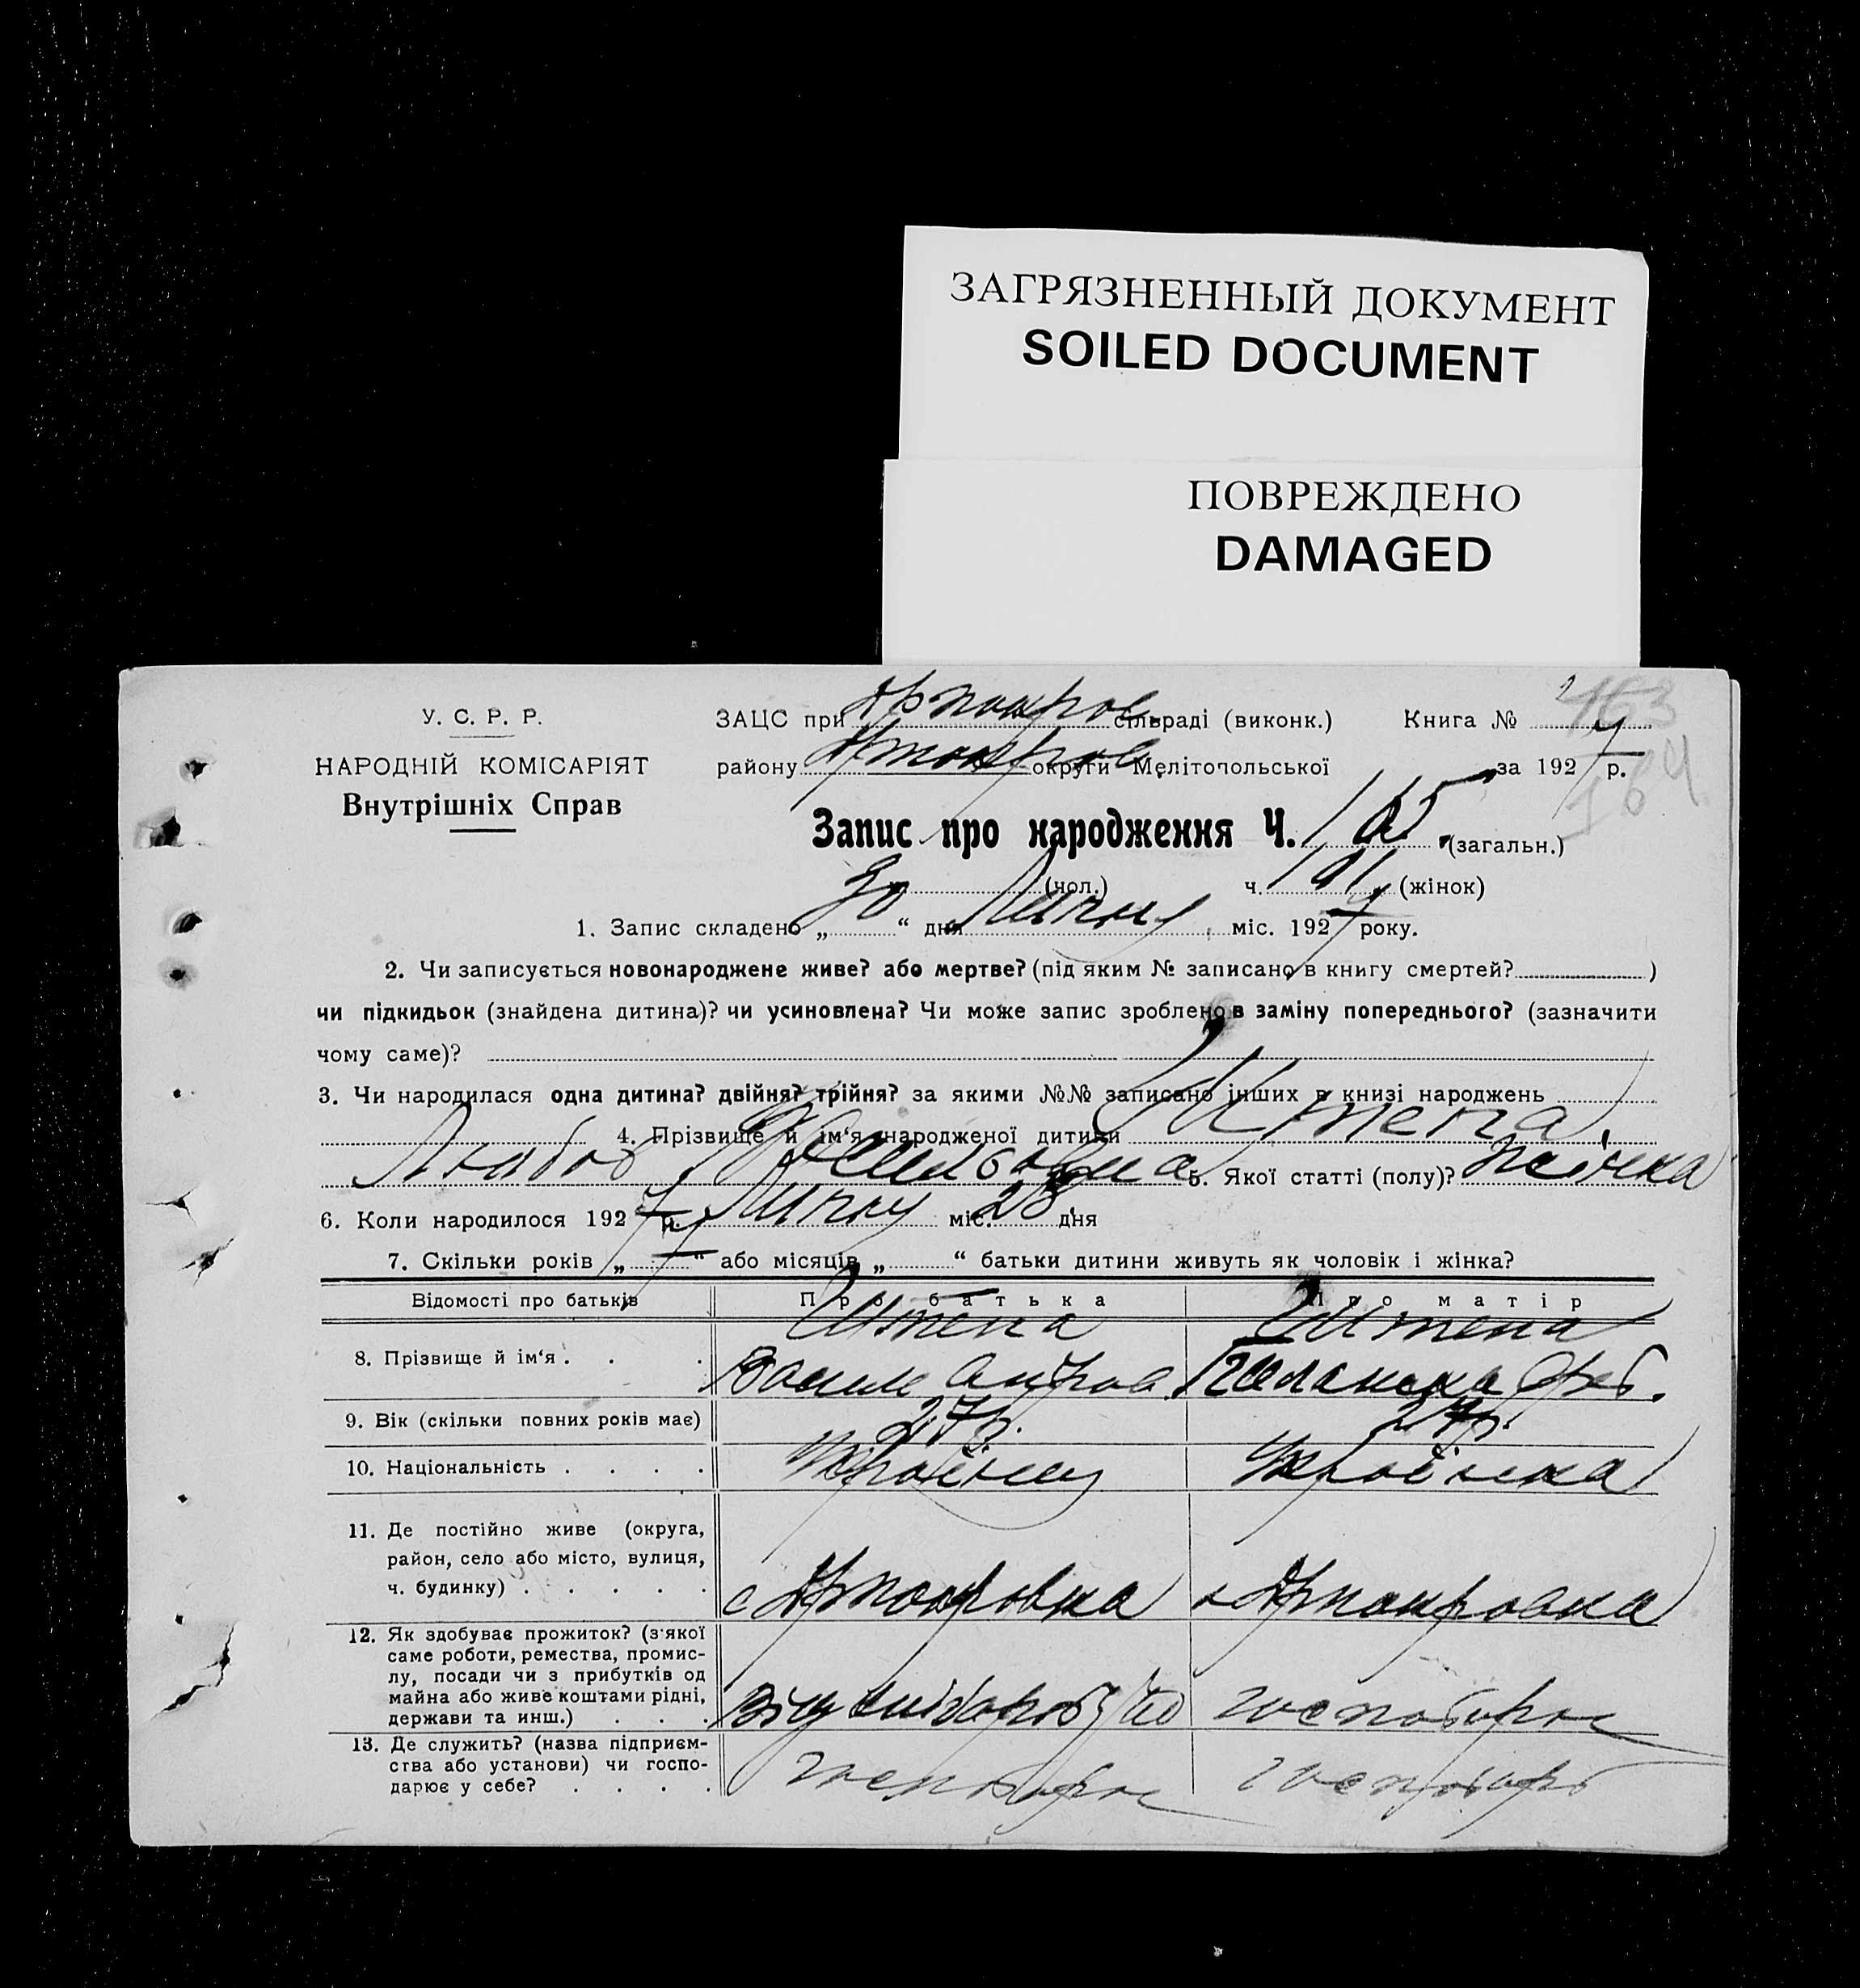 ЗАГРЯЗНЕННЫЙ ДОКУМЕНТ
SOILED DOCUMENT
ПОВРЕЖДЕНО
DAMAGED
У. С. Р. Р.
НАРОДНІЙ КОМІСАРІЯТ
Внутрішніх Справ
ЗАЦС при сільраді (виконк.) Книга №
району округи Мелітопольської за 1927 р.
163
164
Запис про народження Ч. 165 (загальн.)
(чол.) ч. 101 (жінок)
1. Запис складено „30“ дня Липня міс. 1927 року.
2. Чи записується новонароджене живе? або мертве? (під яким № записано в книгу смертей? )
чи підкидьок (знайдена дитина)? чи усиновлена? Чи може запис зроблено в заміну попереднього? (зазначити
чому саме)?
3. Чи народилася одна дитина? двійня? трійня? за якими №№ записано інших в книзі народжень
4. Прізвище й ім‘я народженої дитини Штепа
Любов Васильовна 5. Якої статті (полу)? жіноча
6. Коли народилося 1927 р. Липня міс. 28 дня
7. Скільки років „7“ або місяців „ “ батьки дитини живуть як чоловік і жінка?
Відомості про батьків Про батька Про матір
8. Прізвище й ім‘я . . . Штепа Штепа
Василь Андров
9. Вік (скільки повних років має) 27 р. 27 р.
10. Національність . . . . Українец Українка
11. Де постійно живе (округа,
район, село або місто, вулиця,
ч. будинку) . . . . .
12. Як здобуває прожиток? (з'якої
саме роботи, ремества, промис-
лу, посади чи з прибутків од
майна або живе коштами рідні,
держави та инш.) . . .
13. Де служить? (назва підприєм-
ства або установи) чи госпо-
дарює у себе? . . . .